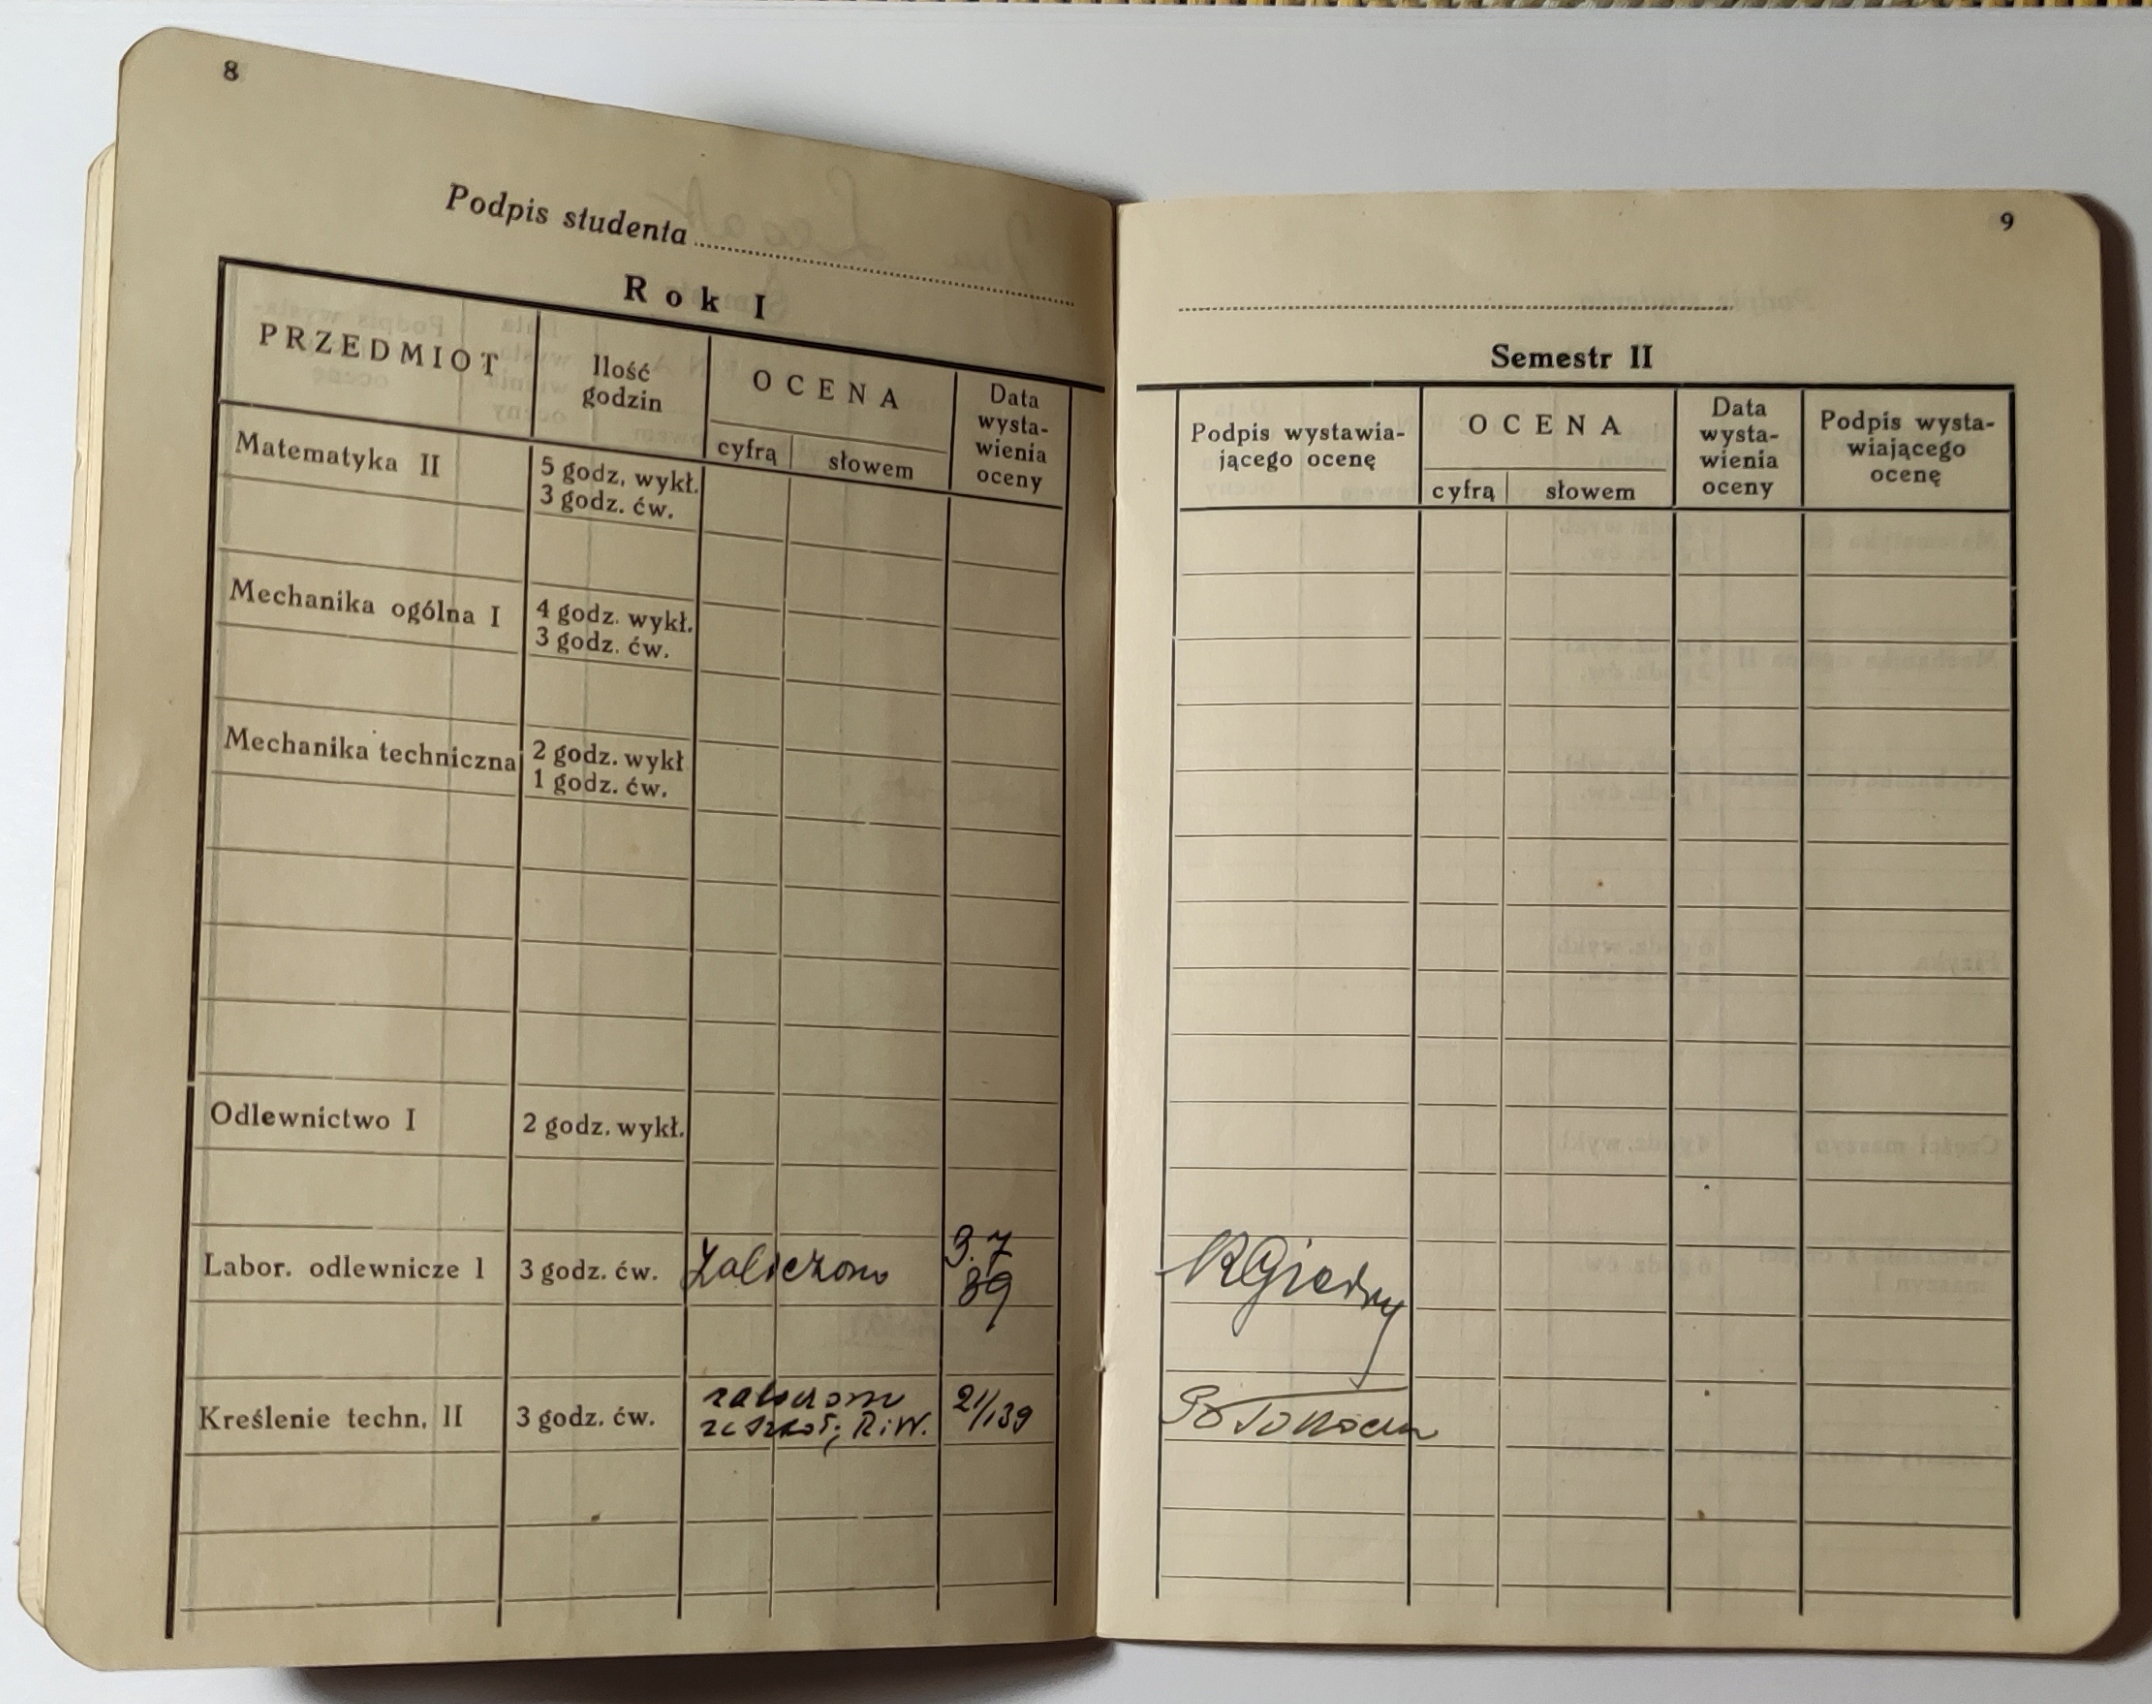 8
Podpis studenta
Rok I
PRZEDMIOT
Ilość
godzin
OCENA
cyfrą
słowem
Data
wysta-
wienia
oceny
Matematyka II
5 godz. wykł.
3 godz. ćw.
Mechanika ogólna I
4 godz. wykł.
3 godz. ćw.
Mechanika techniczna
2 godz. wykł
1 godz. ćw.
Odlewnictwo I
2 godz. wykł.
Labor. odlewnicze I
3 godz. ćw.
Zaliczono
3.7
39
Kreślenie techn. II
3 godz. ćw.
zaliczono
ze R.i W.
21/139
9
Semestr II
Podpis wystawia-
jącego ocenę
OCENA
cyfrą
słowem
Data
wysta-
wienia
oceny
Podpis wysta-
wiającego
ocenę